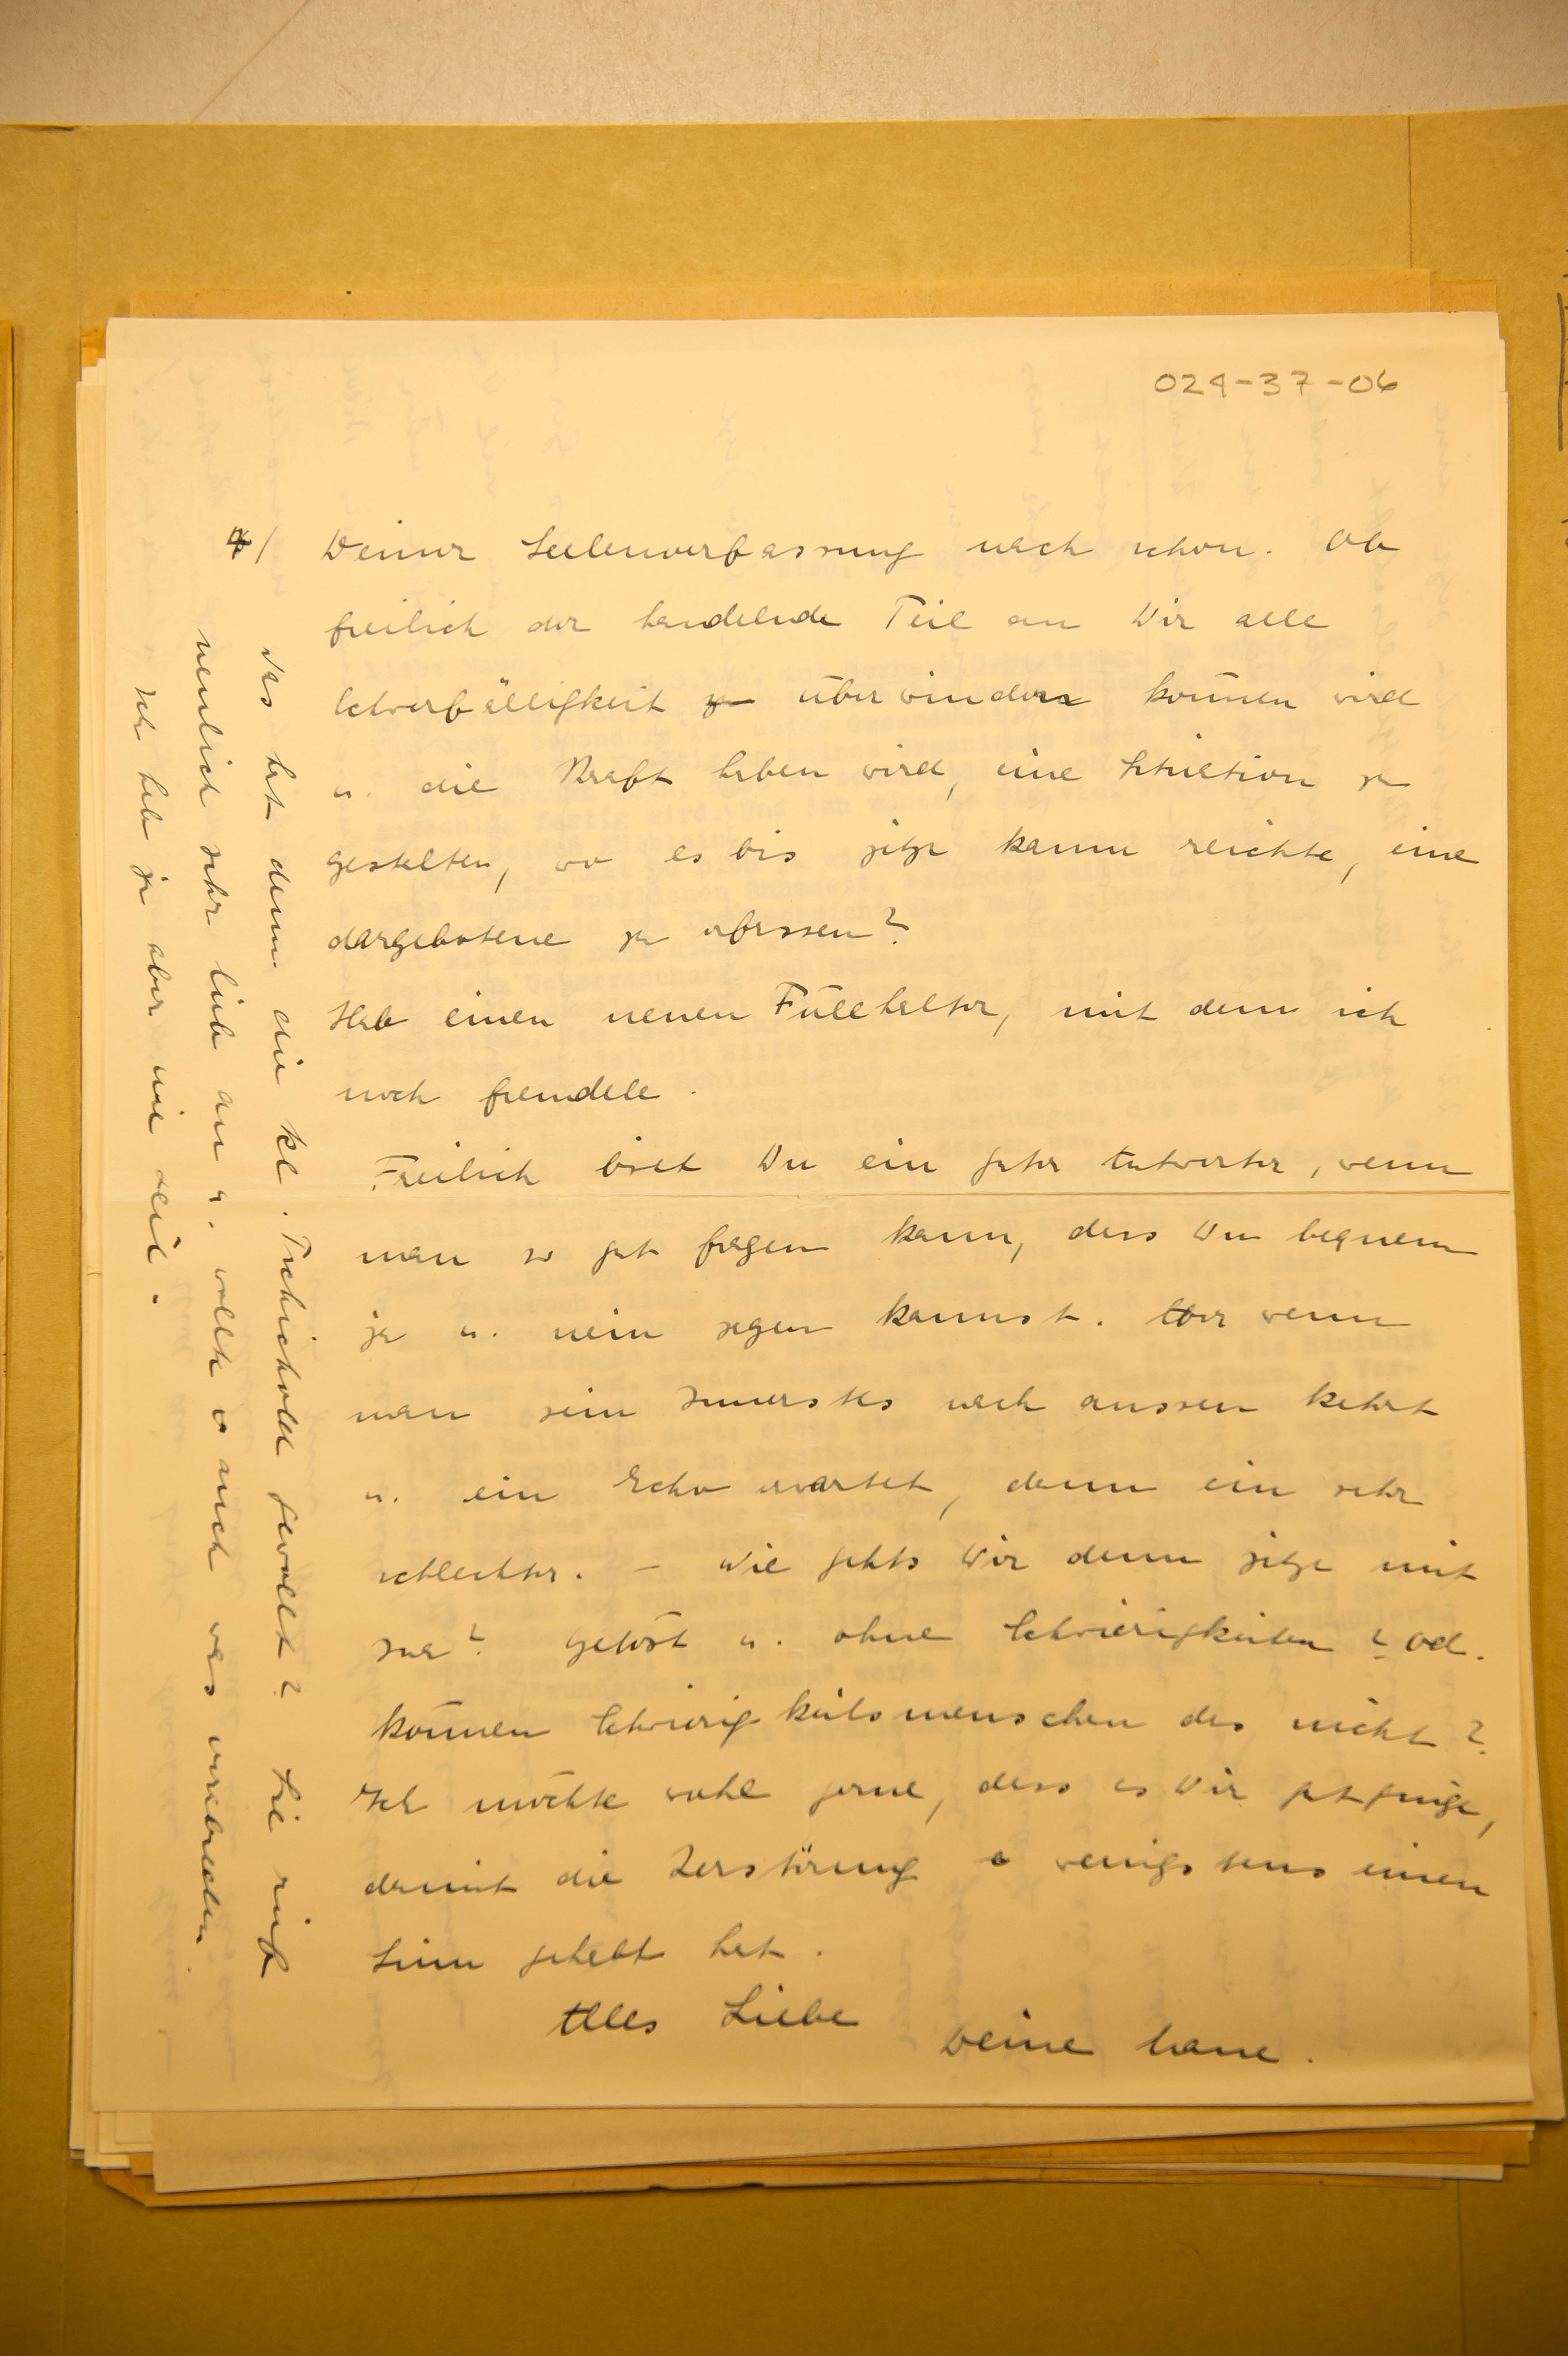 024-37-06
4/ Deiner Seelenverfassung nach schon. Ob
freilich der handelnde Teil an Dir alle
Schwerfälligkeit überwinden können wird
u. die Kraft haben wird, eine Situation zu
gestalten, wo es bis jetzt kaum reichte, eine
dargebotene zu erfassen?
Hab einen neuen Füllhalter, mit dem ich
noch fremdele.
Freilich bist Du ein guter Antworter, wenn
man so gut fragen kann, dass Du bequem
ja u. nein sagen kannst. Aber wenn
man sein Innerstes nach aussen kehrt
u. ein Echo erwartet, dann ein sehr
schlechter. – Wie gehts Dir denn jetzt mit
Ina? Gelöst u. ohne Schwierigkeiten? Od.
können Schwierigkeitsmenschen das nicht?
Ich möchte wohl gerne, dass es Dir gut ginge,
damit die Zerstörung wenigstens einen
Sinn gehabt hat.
Alles Liebe
Deine
Was hat denn die kl. Tschichold gewollt? Sie rief
neulich sehr lieb an u. wollte auch was verabreden
Ich hab ja aber nie Zeit.